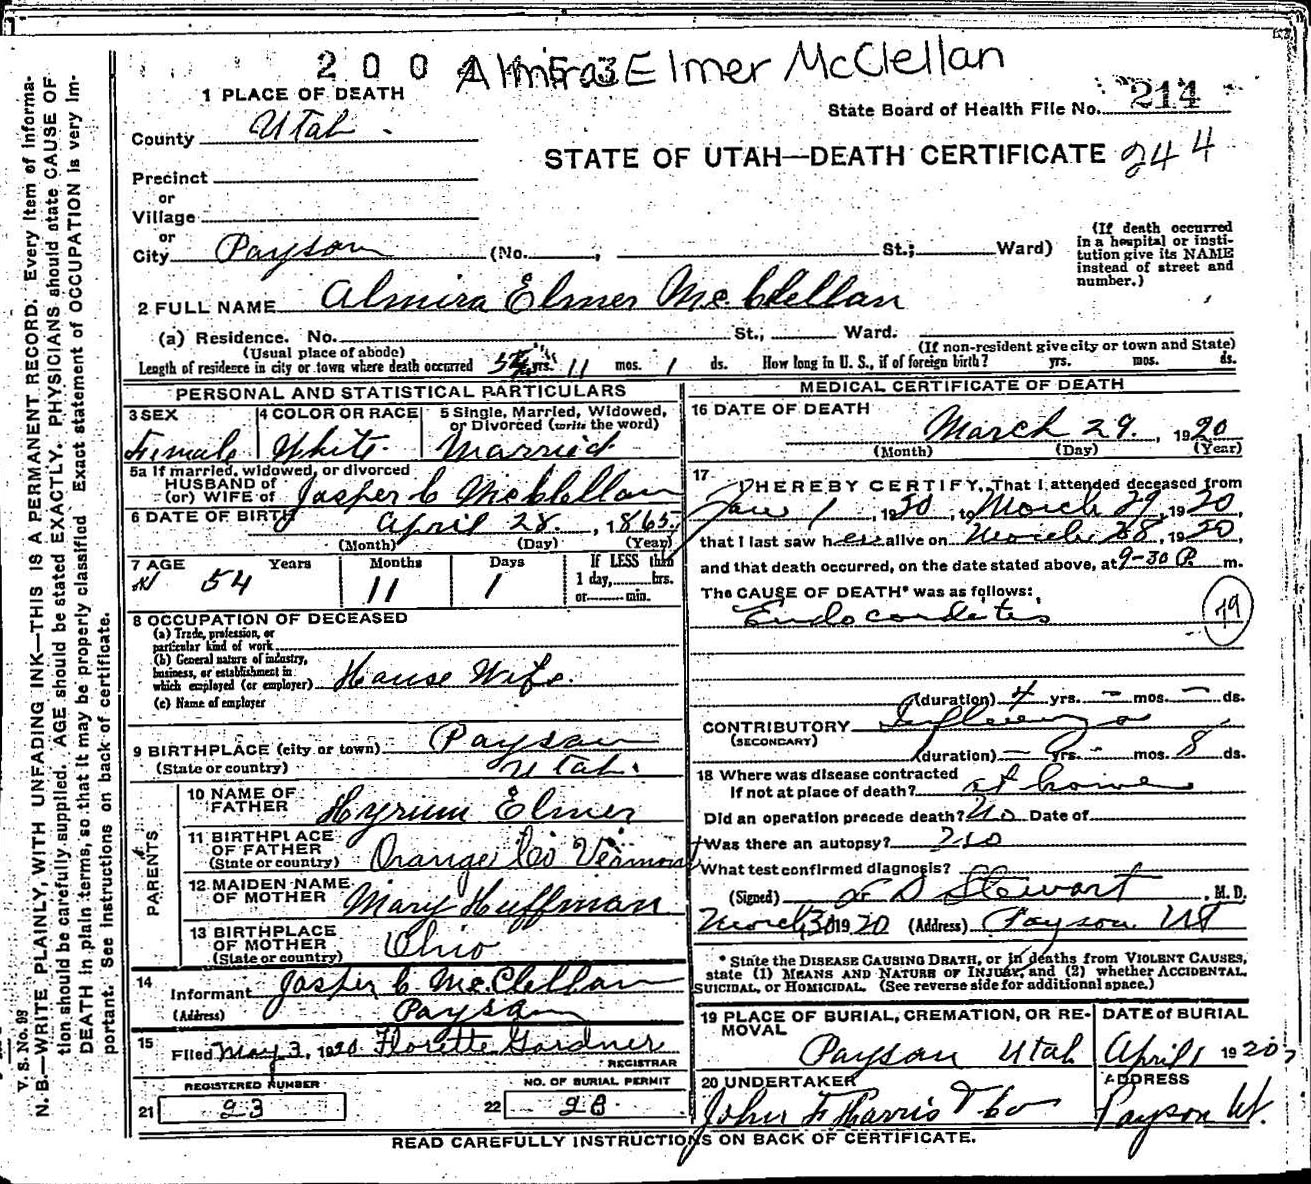 Almira Elmer McClellan
1 PLACE OF DEATH
State Board of Health File No. 214
County Utah
STATE OF UTAH—DEATH CERTIFICATE 244
Precinct
or
Village
or
City Payson (No. , St.; Ward)
(If death occurred in a hospital or institution give its NAME instead of street and number.)
2 FULL NAME Almira Elmer McClellan
(a) Residence. No. St., Ward.
(Usual place of abode) (If non-resident give city or town and State)
Length of residence in city or town where death occurred 54 yrs. 11 mos. 1 ds. How long in U. S., if of foreign birth? yrs. mos. ds.
PERSONAL AND STATISTICAL PARTICULARS
3 SEX Female
4 COLOR OR RACE White
5 Single, Married, Widowed, or Divorced (write the word) Married
5a If married, widowed, or divorced
HUSBAND of
(or) WIFE of Jasper C McClellan
6 DATE OF BIRTH April 28, 1865
(Month) (Day) (Year)
7 AGE Years Months Days If LESS than
54 11 1 1 day, hrs.
or min.
8 OCCUPATION OF DECEASED
(a) Trade, profession, or
particular kind of work
(b) General nature of industry,
business, or establishment in
which employed (or employer) House Wife.
(c) Name of employer
9 BIRTHPLACE (city or town) Payson
(State or country) Utah.
PARENTS
10 NAME OF FATHER Hyrum Elmer
11 BIRTHPLACE OF FATHER (State or country) Orange Co Vermont
12 MAIDEN NAME OF MOTHER Mary Huffman
13 BIRTHPLACE OF MOTHER (State or country) Ohio
14 Informant Jasper C. McClellan
(Address) Payson
15 Filed May 3, 1920 Florette Gardner
REGISTRAR
REGISTERED NUMBER
21 23
NO. OF BURIAL PERMIT
22 28
MEDICAL CERTIFICATE OF DEATH
16 DATE OF DEATH
March 29, 1920
(Month) (Day) (Year)
17 I HEREBY CERTIFY, That I attended deceased from
Jan 1, 1920, to March 29, 1920,
that I last saw her alive on March 28, 1920,
and that death occurred, on the date stated above, at 9-30 P. m.
The CAUSE OF DEATH* was as follows:
Endocordetes 79
(duration) 4 yrs. – mos. – ds.
CONTRIBUTORY Influenza
(SECONDARY)
(duration) – yrs. – mos. 8 ds.
18 Where was disease contracted
If not at place of death? at home
Did an operation precede death? No Date of
Was there an autopsy? no
What test confirmed diagnosis?
(Signed) Stewart, M. D.
March 30 1920 (Address) Payson Ut
* State the DISEASE CAUSING DEATH, or in deaths from VIOLENT CAUSES,
state (1) MEANS AND NATURE OF INJURY, and (2) whether ACCIDENTAL,
SUICIDAL, or HOMICIDAL. (See reverse side for additional space.)
19 PLACE OF BURIAL, CREMATION, OR REMOVAL Payson Utah
DATE of BURIAL April 1 1920
20 UNDERTAKER John F Harris & Co
ADDRESS Payson Ut.
READ CAREFULLY INSTRUCTIONS ON BACK OF CERTIFICATE.
V. S. No. 98
N. B.—WRITE PLAINLY, WITH UNFADING INK—THIS IS A PERMANENT RECORD. Every item of information
should be carefully supplied. AGE should be stated EXACTLY. PHYSICIANS should state CAUSE OF
DEATH in plain terms, so that it may be properly classified. Exact statement of OCCUPATION is very important.
See instructions on back of certificate.